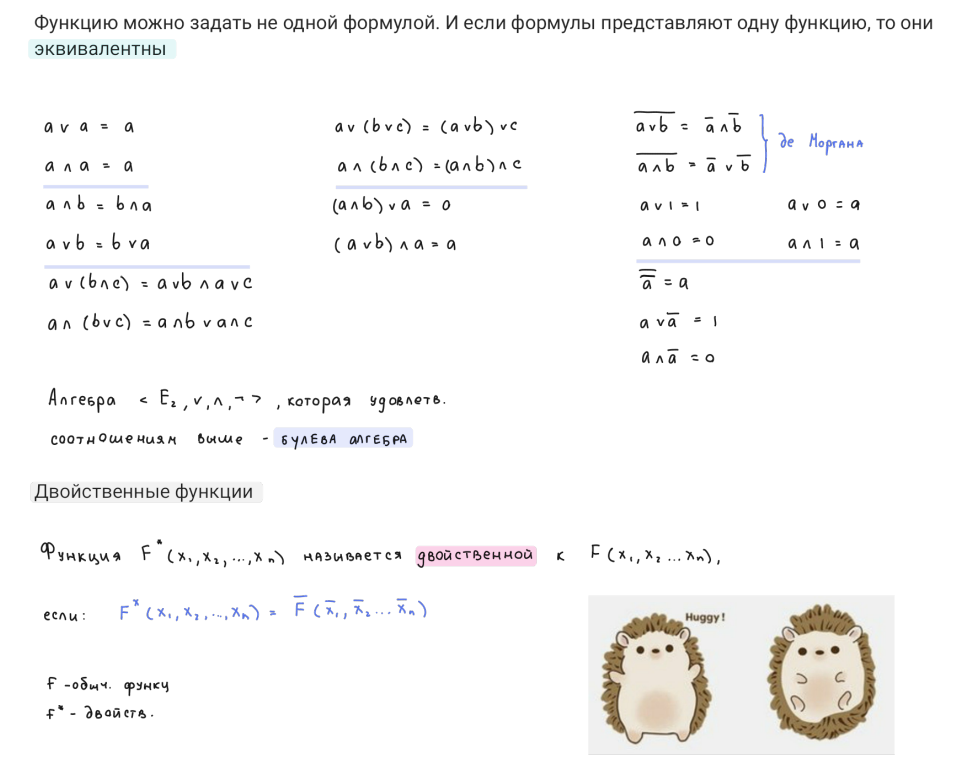 Функцию можно задать не одной формулой. И если формулы представляют одну функцию, то они
эквивалентны
a ∨ a = a
a ∧ a = a
a ∧ b = b ∧ a
a ∨ b = b ∨ a
a ∨ (b ∧ c) = a ∨ b ∧ a ∨ c
a ∧ (b ∨ c) = a ∧ b ∨ a ∧ c
a ∨ (b ∨ c) = (a ∨ b) ∨ c
a ∧ (b ∧ c) = (a ∧ b) ∧ c
(a ∧ b) ∨ a = 0
(a ∨ b) ∧ a = a
a̅ ̅∨̅ ̅b̅ = a̅ ∧ b̅
a̅ ̅∧̅ ̅b̅ = a̅ ∨ b̅
де Моргана
a ∨ 1 = 1 a ∨ 0 = a
a ∧ 0 = 0 a ∧ 1 = a
a̿ = a
a ∨ a̅ = 1
a ∧ a̅ = 0
Алгебра < E₂, ∨, ∧, ¬ >, которая удовлетв.
соотношениям выше - БУЛЕВА АЛГЕБРА
Двойственные функции
Функция F*(x₁, x₂, ..., xₙ) называется двойственной к F(x₁, x₂ ... xₙ),
если: F*(x₁, x₂, ..., xₙ) = F̅(x̅₁, x̅₂ ... x̅ₙ)
Huggy!
F - обыч. функц
F* - двойств.